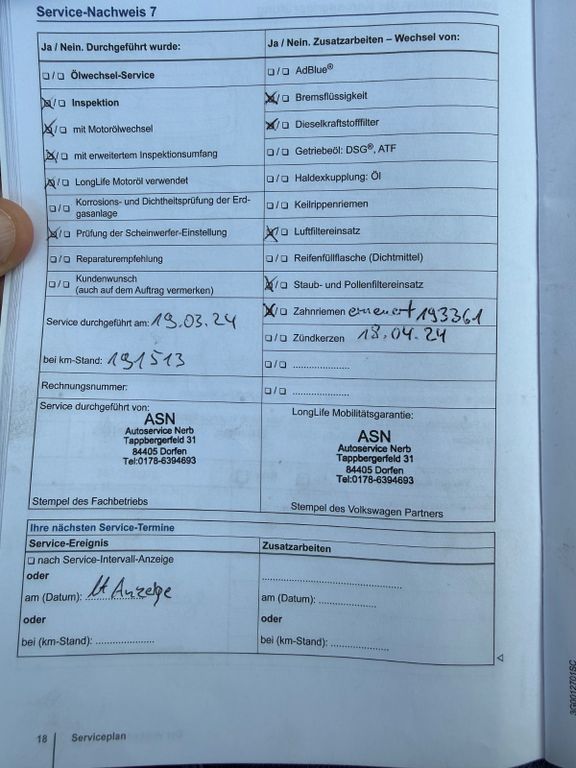 Service-Nachweis 7
Ja / Nein. Durchgeführt wurde:
☐/☐ Ölwechsel-Service
☒/☐ Inspektion
☒/☐ mit Motorölwechsel
☒/☐ mit erweitertem Inspektionsumfang
☒/☐ LongLife Motoröl verwendet
☐/☐ Korrosions- und Dichtheitsprüfung der Erd-
gasanlage
☒/☐ Prüfung der Scheinwerfer-Einstellung
☐/☐ Reparaturempfehlung
☐/☐ Kundenwunsch
(auch auf dem Auftrag vermerken)
Service durchgeführt am: 19.03.24
bei km-Stand: 191513
Rechnungsnummer:
Service durchgeführt von:
ASN
Autoservice Nerb
Tappbergerfeld 31
84405 Dorfen
Tel:0178-6394693
Stempel des Fachbetriebs
Ja / Nein. Zusatzarbeiten – Wechsel von:
☐/☐ AdBlue®
☒/☐ Bremsflüssigkeit
☒/☐ Dieselkraftstofffilter
☐/☐ Getriebeöl: DSG®, ATF
☐/☐ Haldexkupplung: Öl
☐/☐ Keilrippenriemen
☒/☐ Luftfiltereinsatz
☐/☐ Reifenfüllflasche (Dichtmittel)
☒/☐ Staub- und Pollenfiltereinsatz
☒/☐ Zahnriemen erneuert 193361
☐/☐ Zündkerzen 18.04.24
☐/☐ ....................
☐/☐ ....................
LongLife Mobilitätsgarantie:
ASN
Autoservice Nerb
Tappbergerfeld 31
84405 Dorfen
Tel:0178-6394693
Stempel des Volkswagen Partners
Ihre nächsten Service-Termine
Service-Ereignis
☐ nach Service-Intervall-Anzeige
oder
am (Datum): lt Anzeige
oder
bei (km-Stand): ....................
Zusatzarbeiten
..................................................
am (Datum): ....................
oder
bei (km-Stand): ....................
18 Serviceplan
3G0012701SC